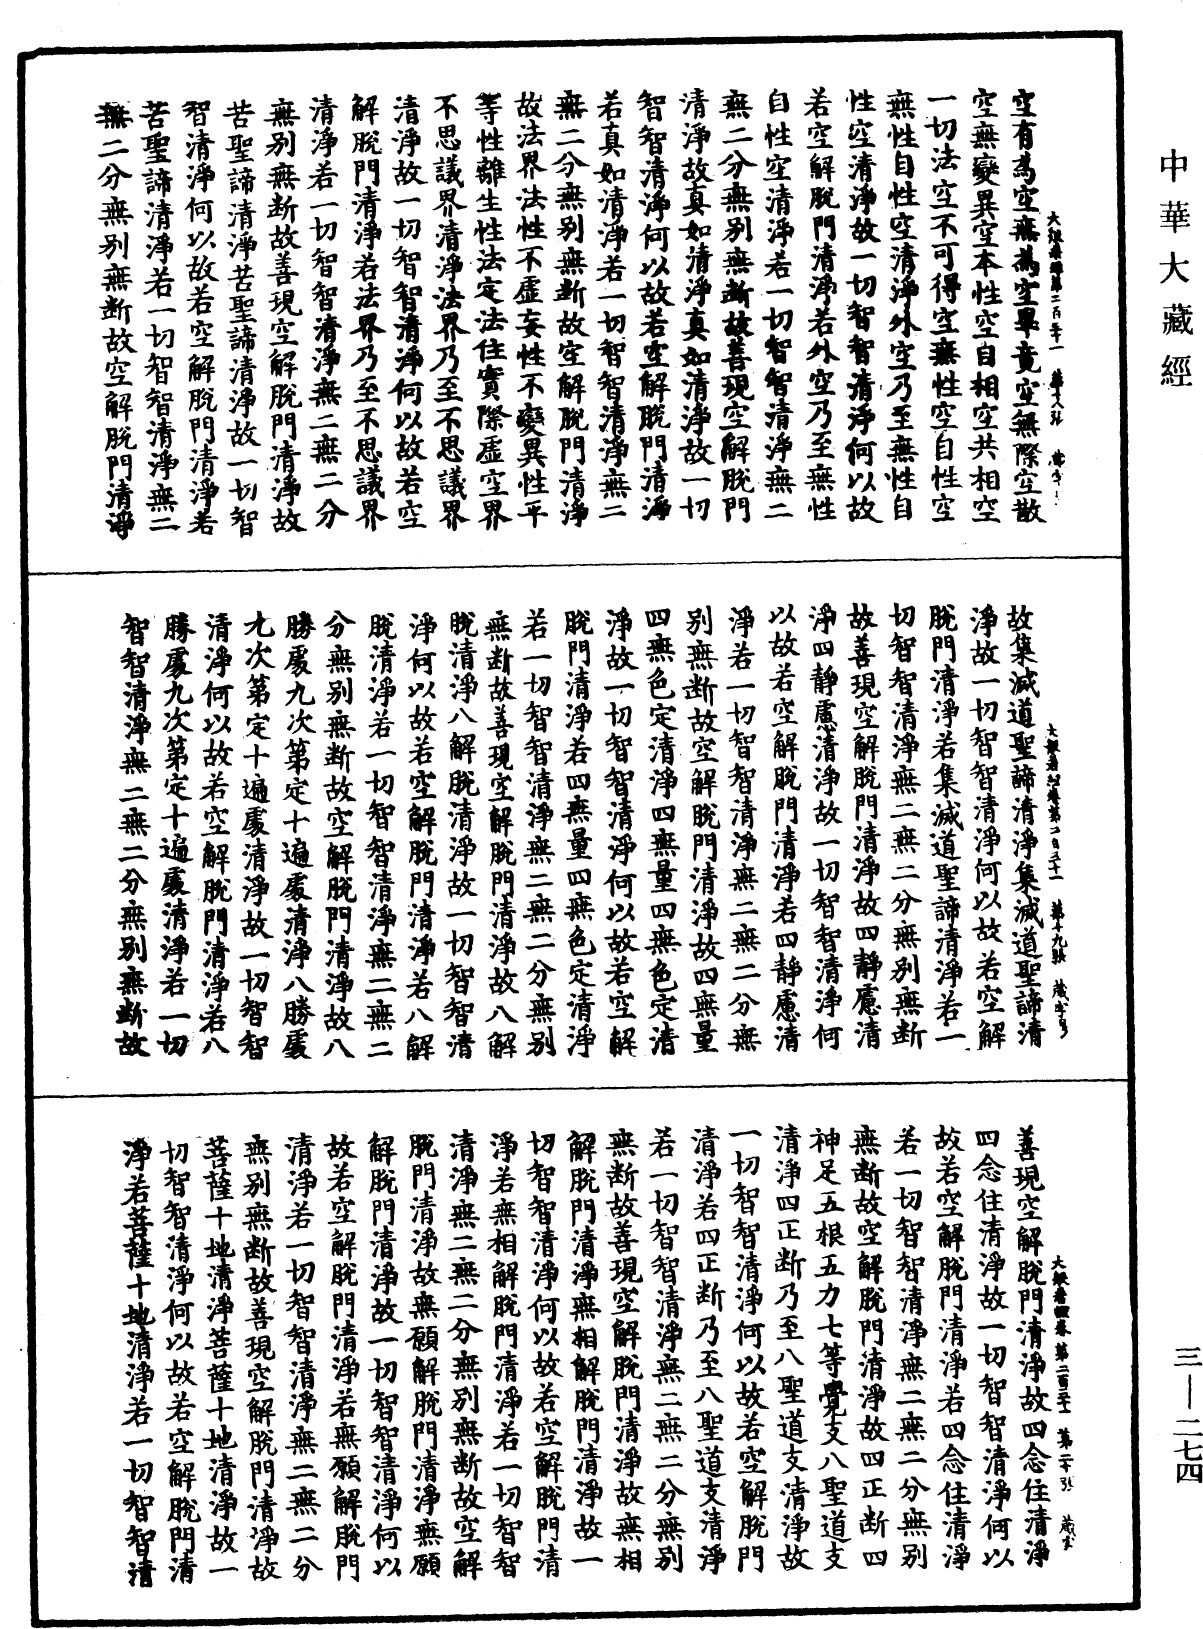 中華大藏經
空有為空無為空畢竟空無際空散
空無變異空本性空自相空共相空
一切法空不可得空無性空自性空
無性自性空清淨外空乃至無性自
性空清淨故一切智智清淨何以故
若空解脫門清淨若外空乃至無性
自性空清淨若一切智智清淨無二
無二分無別無斷故善現空解脫門
清淨故真如清淨真如清淨故一切
智智清淨何以故若空解脫門清淨
若真如清淨若一切智智清淨無二
無二分無別無斷故空解脫門清淨
故法界法性不虛妄性不變異性平
等性離生性法定法住實際虛空界
不思議界清淨法界乃至不思議界
清淨故一切智智清淨何以故若空
解脫門清淨若法界乃至不思議界
清淨若一切智智清淨無二無二分
無別無斷故善現空解脫門清淨故
苦聖諦清淨苦聖諦清淨故一切智
智清淨何以故若空解脫門清淨若
苦聖諦清淨若一切智智清淨無二
無二分無別無斷故空解脫門清淨
故集滅道聖諦清淨集滅道聖諦清
淨故一切智智清淨何以故若空解
脫門清淨若集滅道聖諦清淨若一
切智智清淨無二無二分無別無斷
故善現空解脫門清淨故四靜慮清
淨四靜慮清淨故一切智智清淨何
以故若空解脫門清淨若四靜慮清
淨若一切智智清淨無二無二分無
別無斷故空解脫門清淨故四無量
四無色定清淨四無量四無色定清
淨故一切智智清淨何以故若空解
脫門清淨若四無量四無色定清淨
若一切智智清淨無二無二分無別
無斷故善現空解脫門清淨故八解
脫清淨八解脫清淨故一切智智清
淨何以故若空解脫門清淨若八解
脫清淨若一切智智清淨無二無二
分無別無斷故空解脫門清淨故八
勝處九次第定十遍處清淨八勝處
九次第定十遍處清淨故一切智智
清淨何以故若空解脫門清淨若八
勝處九次第定十遍處清淨若一切
智智清淨無二無二分無別無斷故
善現空解脫門清淨故四念住清淨
四念住清淨故一切智智清淨何以
故若空解脫門清淨若四念住清淨
若一切智智清淨無二無二分無別
無斷故空解脫門清淨故四正斷四
神足五根五力七等覺支八聖道支
清淨四正斷乃至八聖道支清淨故
一切智智清淨何以故若空解脫門
清淨若四正斷乃至八聖道支清淨
若一切智智清淨無二無二分無別
無斷故善現空解脫門清淨故無相
解脫門清淨無相解脫門清淨故一
切智智清淨何以故若空解脫門清
淨若無相解脫門清淨若一切智智
清淨無二無二分無別無斷故空解
脫門清淨故無願解脫門清淨無願
解脫門清淨故一切智智清淨何以
故若空解脫門清淨若無願解脫門
清淨若一切智智清淨無二無二分
無別無斷故善現空解脫門清淨故
菩薩十地清淨菩薩十地清淨故一
切智智清淨何以故若空解脫門清
淨若菩薩十地清淨若一切智智清
三—二七四